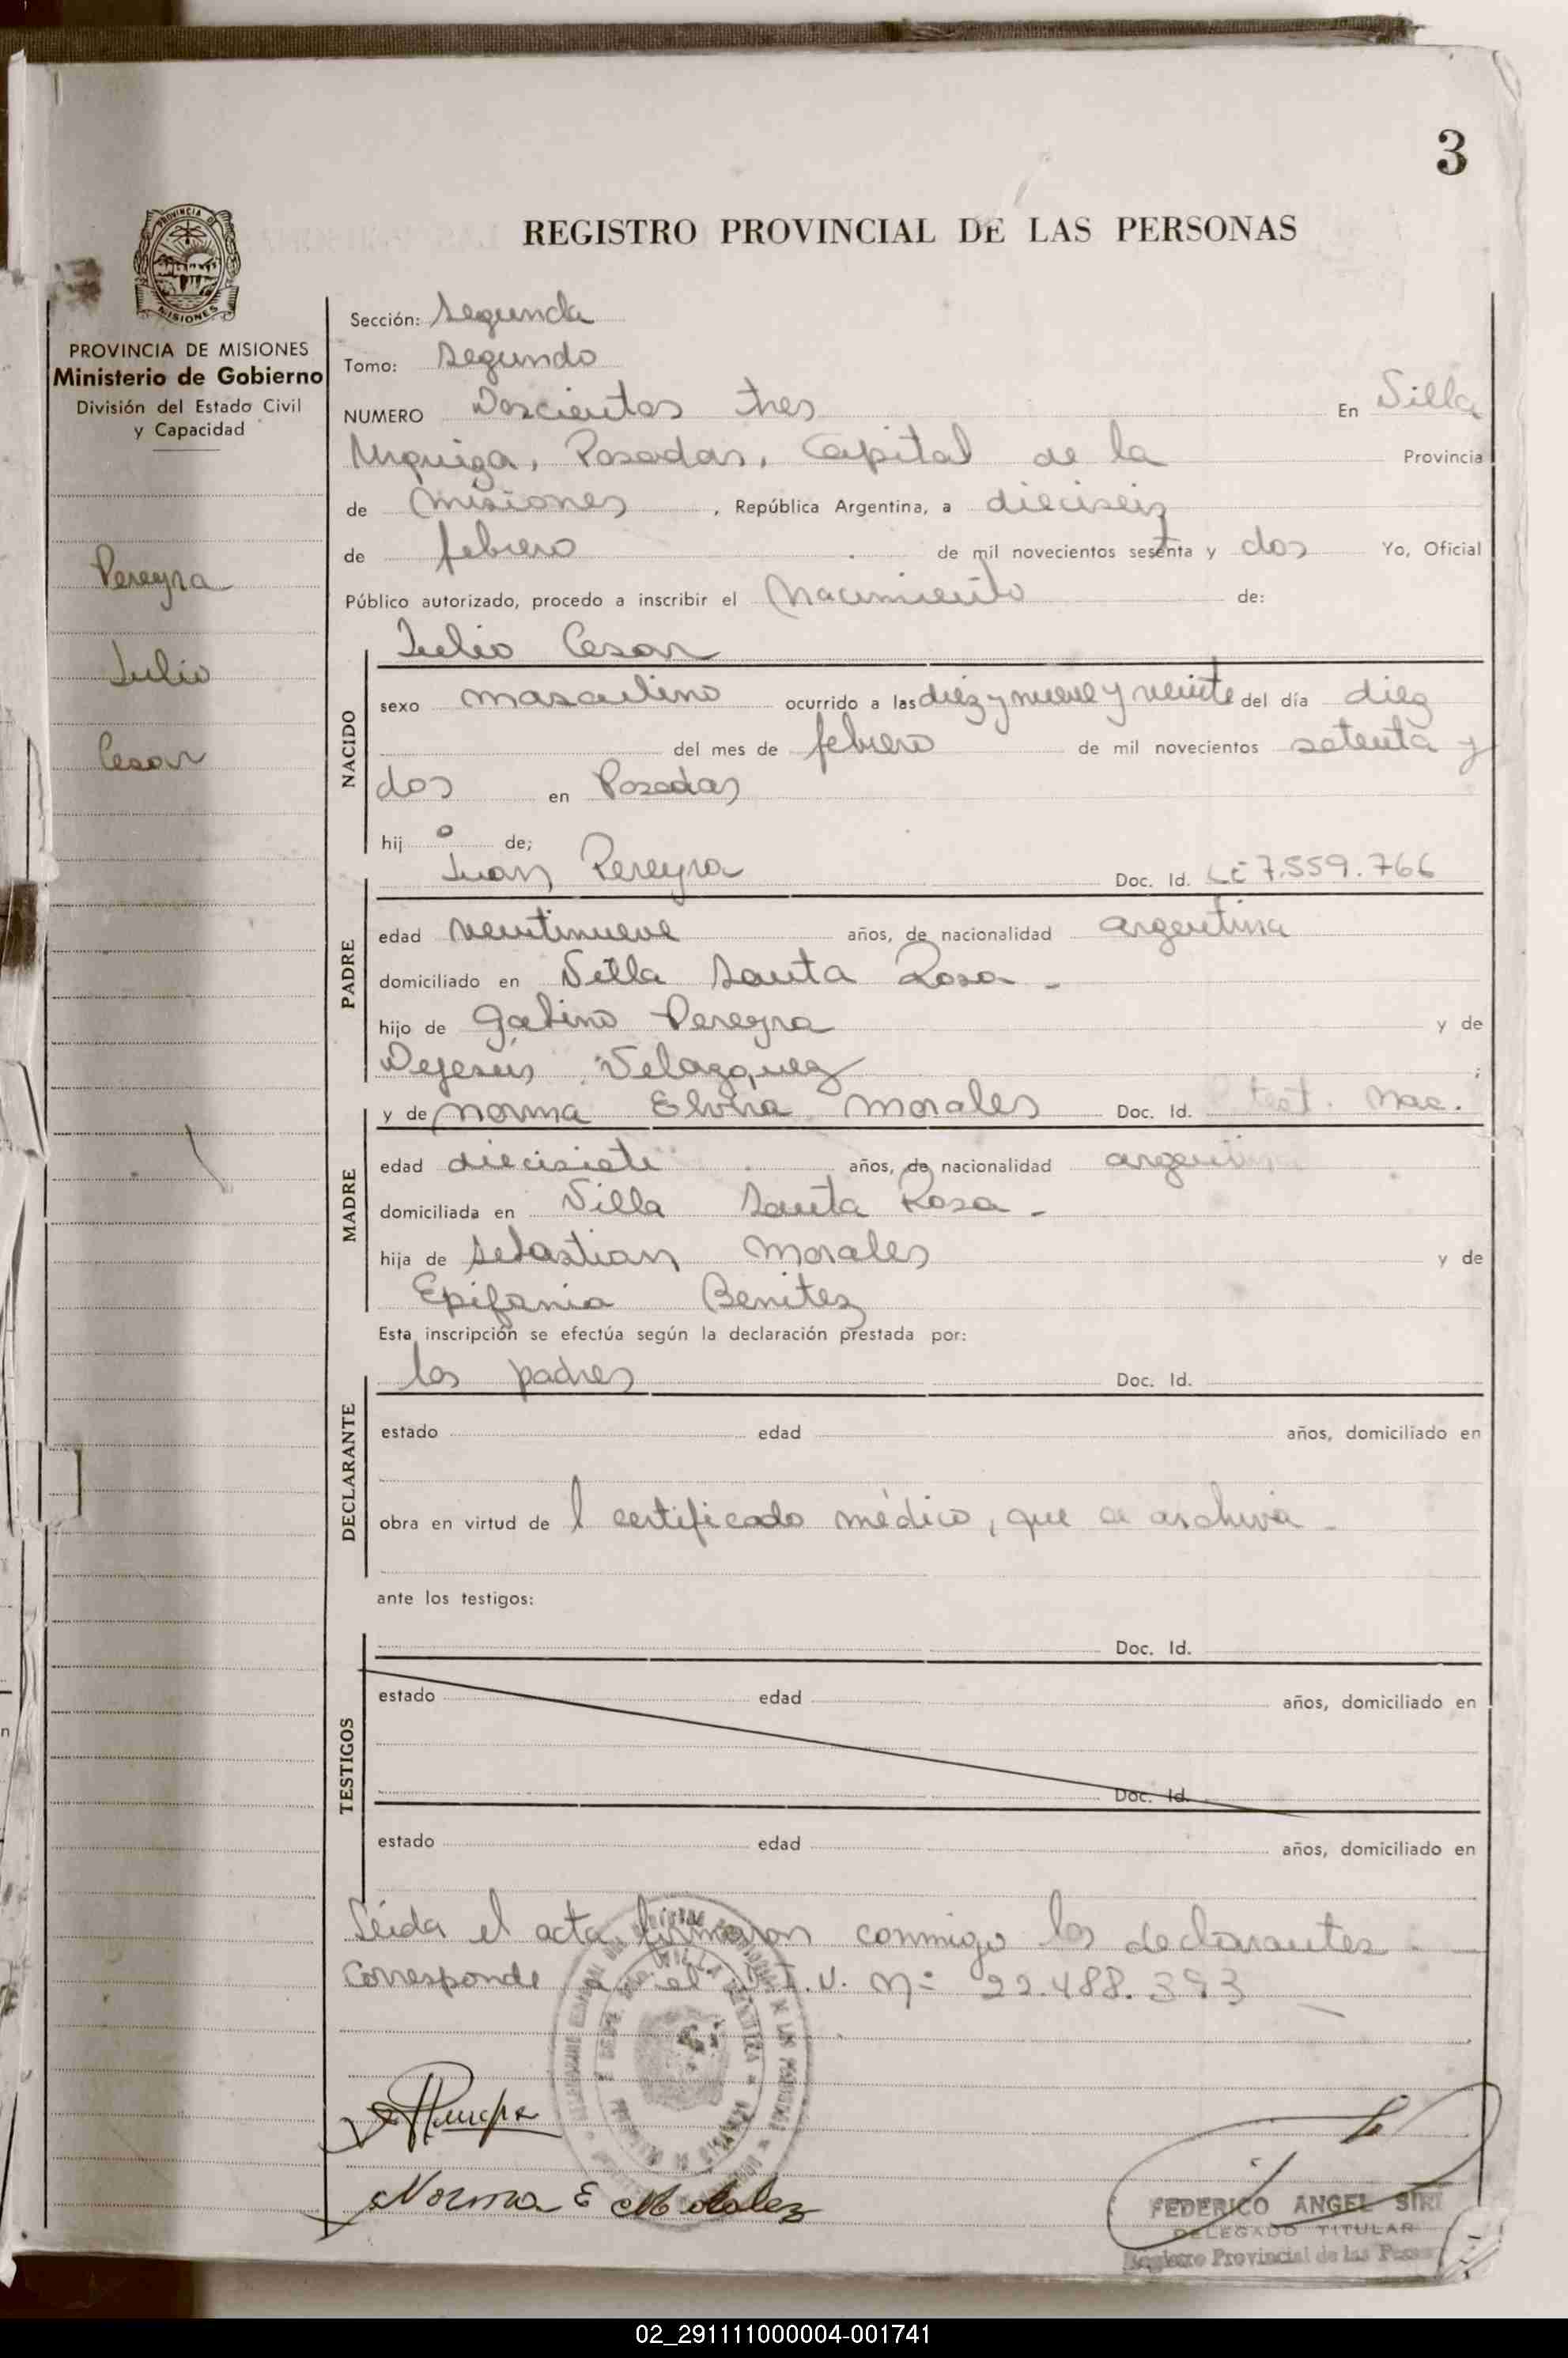 3
REGISTRO PROVINCIAL DE LAS PERSONAS
PROVINCIA DE
MISIONES
PROVINCIA DE MISIONES
Ministerio de Gobierno
División del Estado Civil
y Capacidad
Pereyra
Julio
Cesar
Sección: Segunda
Tomo: Segundo
NUMERO Doscientos tres En Villa
Urquiza, Posadas, Capital de la Provincia
de Misiones, República Argentina, a dieciseis
de febrero de mil novecientos sesenta y dos Yo, Oficial
Público autorizado, procedo a inscribir el Nacimiento de:
Julio Cesar
NACIDO
sexo masculino ocurrido a las diez y nueve y veinte del día diez
del mes de febrero de mil novecientos setenta y
dos en Posadas
hij o de;
Juan Pereyra Doc. Id. LE 7.559.766
PADRE
edad veintinueve años, de nacionalidad argentina
domiciliado en Villa Santa Rosa -
hijo de Gabino Pereyra y de
Dejesús Velazquez ;
y de Norma Elvira Morales Doc. Id. Nac.
MADRE
edad diecisiete años, de nacionalidad argentina
domiciliada en Villa Santa Rosa -
hija de Sebastian Morales y de
Epifania Benitez
Esta inscripción se efectúa según la declaración prestada por:
los padres Doc. Id.
DECLARANTE
estado edad años, domiciliado en
obra en virtud de l certificado médico, que se archiva -
ante los testigos:
Doc. Id.
TESTIGOS
estado edad años, domiciliado en
Doc. Id.
estado edad años, domiciliado en
Leida el acta firmaron conmigo los declarantes.
Corresponde a el I.U. Nº 22.488.393
Norma E Morales
FEDERICO ANGEL SIRI
DELEGADO TITULAR
Registro Provincial de las
02_291111000004-001741